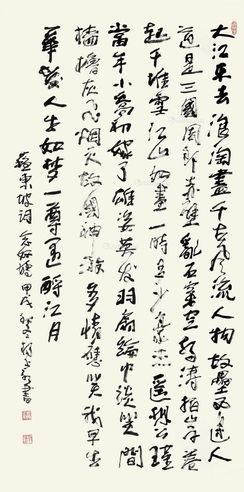 大江東去浪淘盡千古風流人物故壘西邊人
道是三國周郎赤壁亂石穿空驚濤拍岸卷
起千堆雪江山如畫一時多少豪杰遙想公瑾
當年小喬初嫁了雄姿英發羽扇綸巾談笑間
檣櫓灰飛煙滅故國神游多情應笑我早生
華發人生如夢一尊還酹江月
蘇東坡詞念奴嬌甲戌書